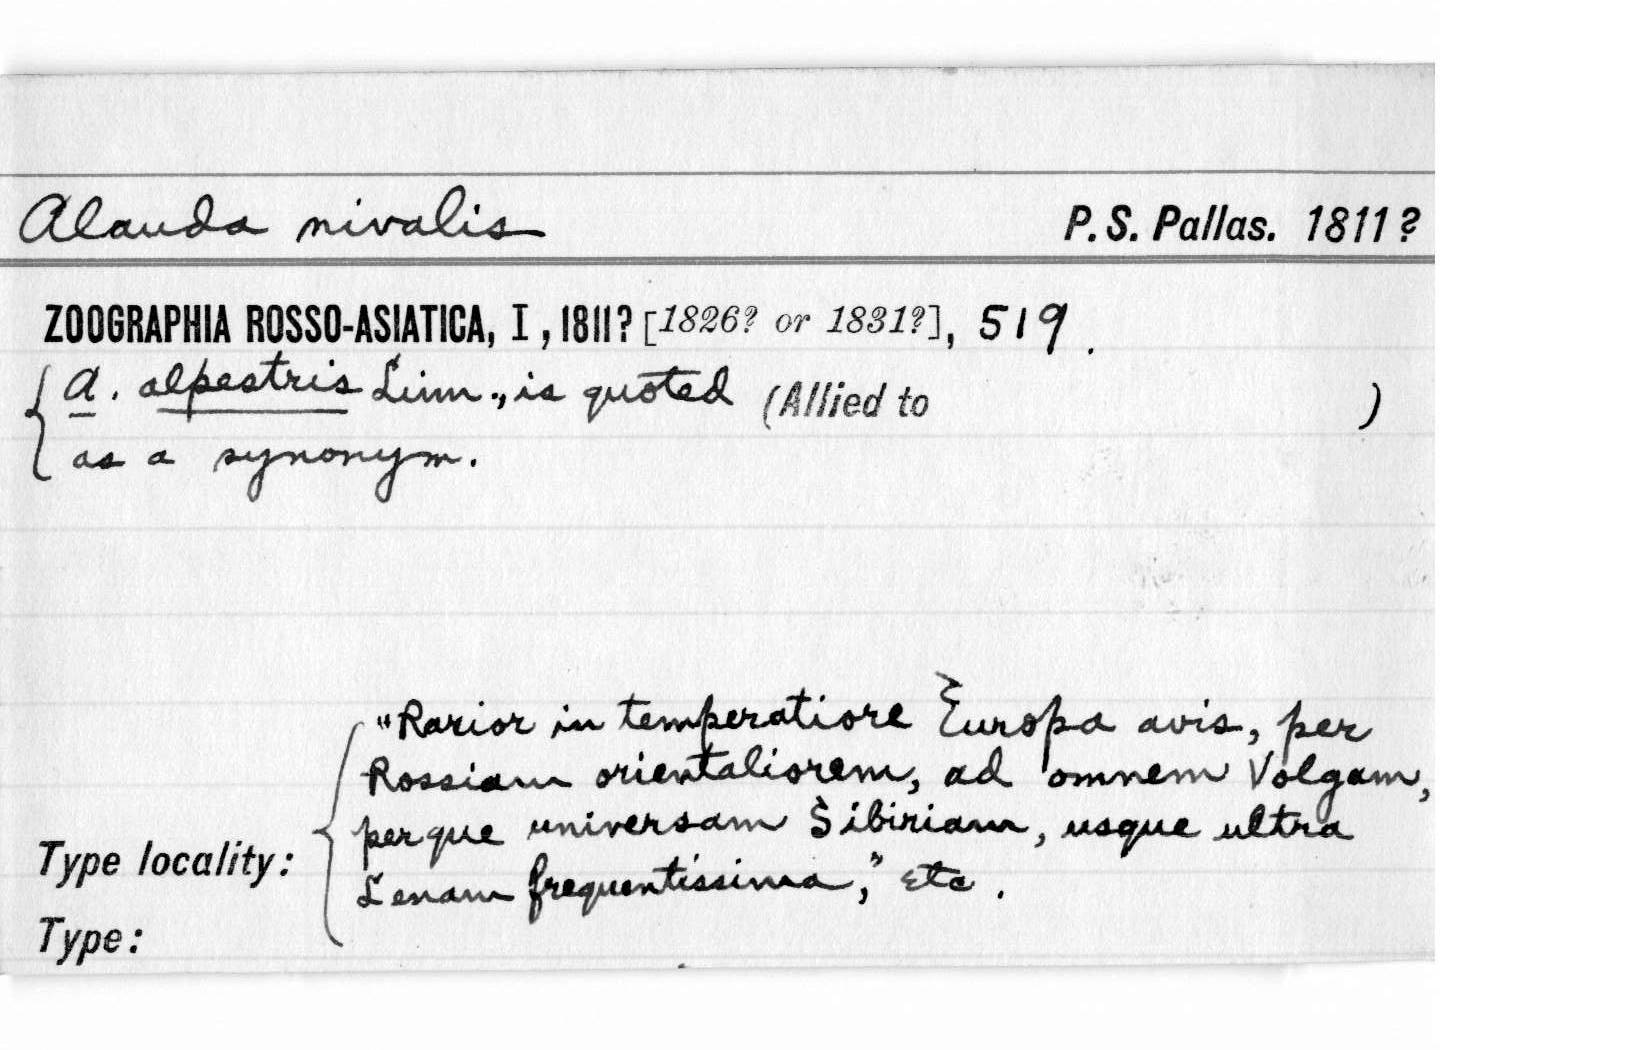 Alauda nivalis P. S. Pallas. 1811?
ZOOGRAPHIA ROSSO-ASIATICA, I, 1811? [1826? or 1831?], 519.
A. alpestris Linn., is quoted (Allied to )
as a synonym.
"Rarior in temperatiore Europa avis, per
Rossiam orientaliorem, ad omnem Volgam,
perque universam Sibiriam, usque ultra
Type locality: Lenam frequentissima," etc.
Type: